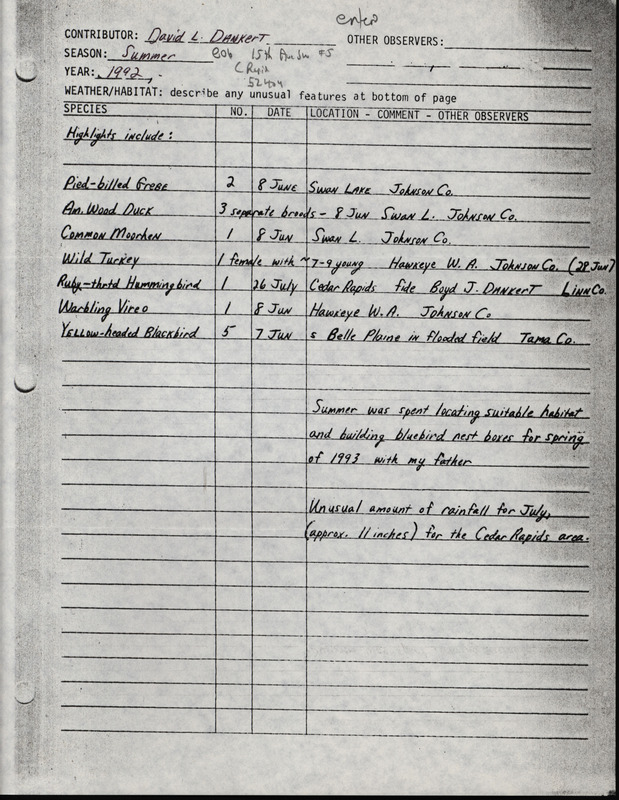 enter
CONTRIBUTOR: David L. Dankert OTHER OBSERVERS:
SEASON: Summer 806 15th Ave SW #5
YEAR: 1992 C Rapids
52404
WEATHER/HABITAT: describe any unusual features at bottom of page
SPECIES NO. DATE LOCATION - COMMENT - OTHER OBSERVERS
Highlights include:
Pied-billed Grebe 2 8 June Swan Lake Johnson Co.
Am. Wood Duck 3 separate broods - 8 Jun Swan L. Johnson Co.
Common Moorhen 1 8 Jun Swan L. Johnson Co.
Wild Turkey 1 female with ~7-9 young Hawkeye W. A. Johnson Co. (28 Jun)
Ruby-thrtd Hummingbird 1 26 July Cedar Rapids fide Boyd J. Dankert Linn Co.
Warbling Vireo 1 8 Jun Hawkeye W.A. Johnson Co
Yellow-headed Blackbird 5 7 Jun s Belle Plaine in flooded field Tama Co.
Summer was spent locating suitable habitat
and building bluebird nest boxes for spring
of 1993 with my father
Unusual amount of rainfall for July,
(approx. 11 inches) for the Cedar Rapids area.